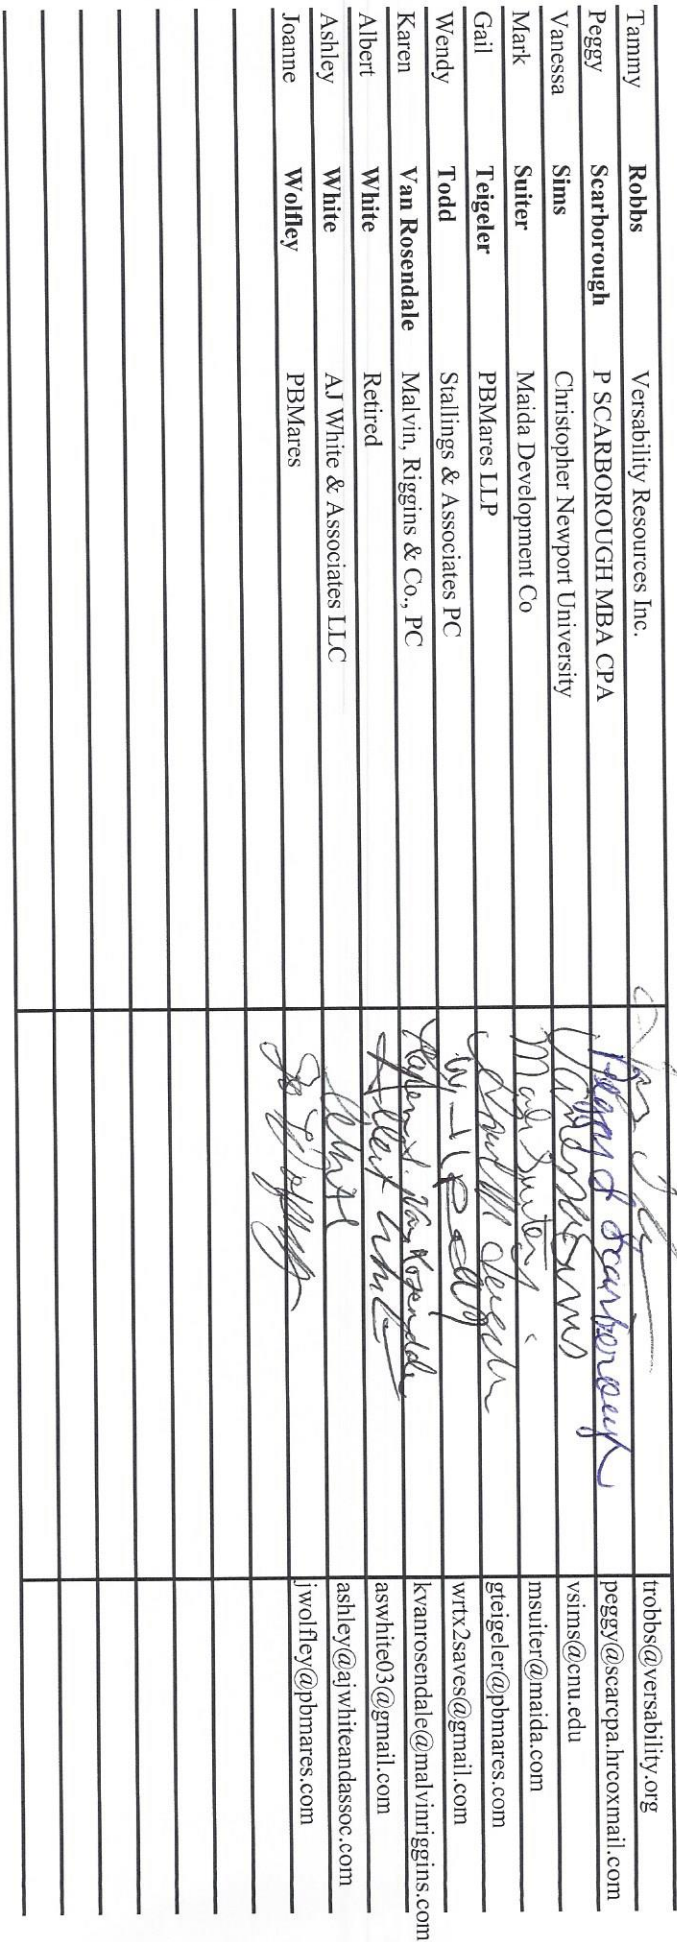 Tammy Robbs Versability Resources Inc. trobbs@versability.org
Peggy Scarborough P SCARBOROUGH MBA CPA Peggy S Scarborough peggy@scarcpa.hrcoxmail.com
Vanessa Sims Christopher Newport University Vanessa Sims vsims@cnu.edu
Mark Suiter Maida Development Co Mark Suiter msuiter@maida.com
Gail Teigeler PBMares LLP gteigeler@pbmares.com
Wendy Todd Stallings & Associates PC wrtx2saves@gmail.com
Karen Van Rosendale Malvin, Riggins & Co., PC Karen S. Van Rosendale kvanrosendale@malvinriggins.com
Albert White Retired Albert White aswhite03@gmail.com
Ashley White AJ White & Associates LLC ashley@ajwhiteandassoc.com
Joanne Wolfley PBMares jwolfley@pbmares.com